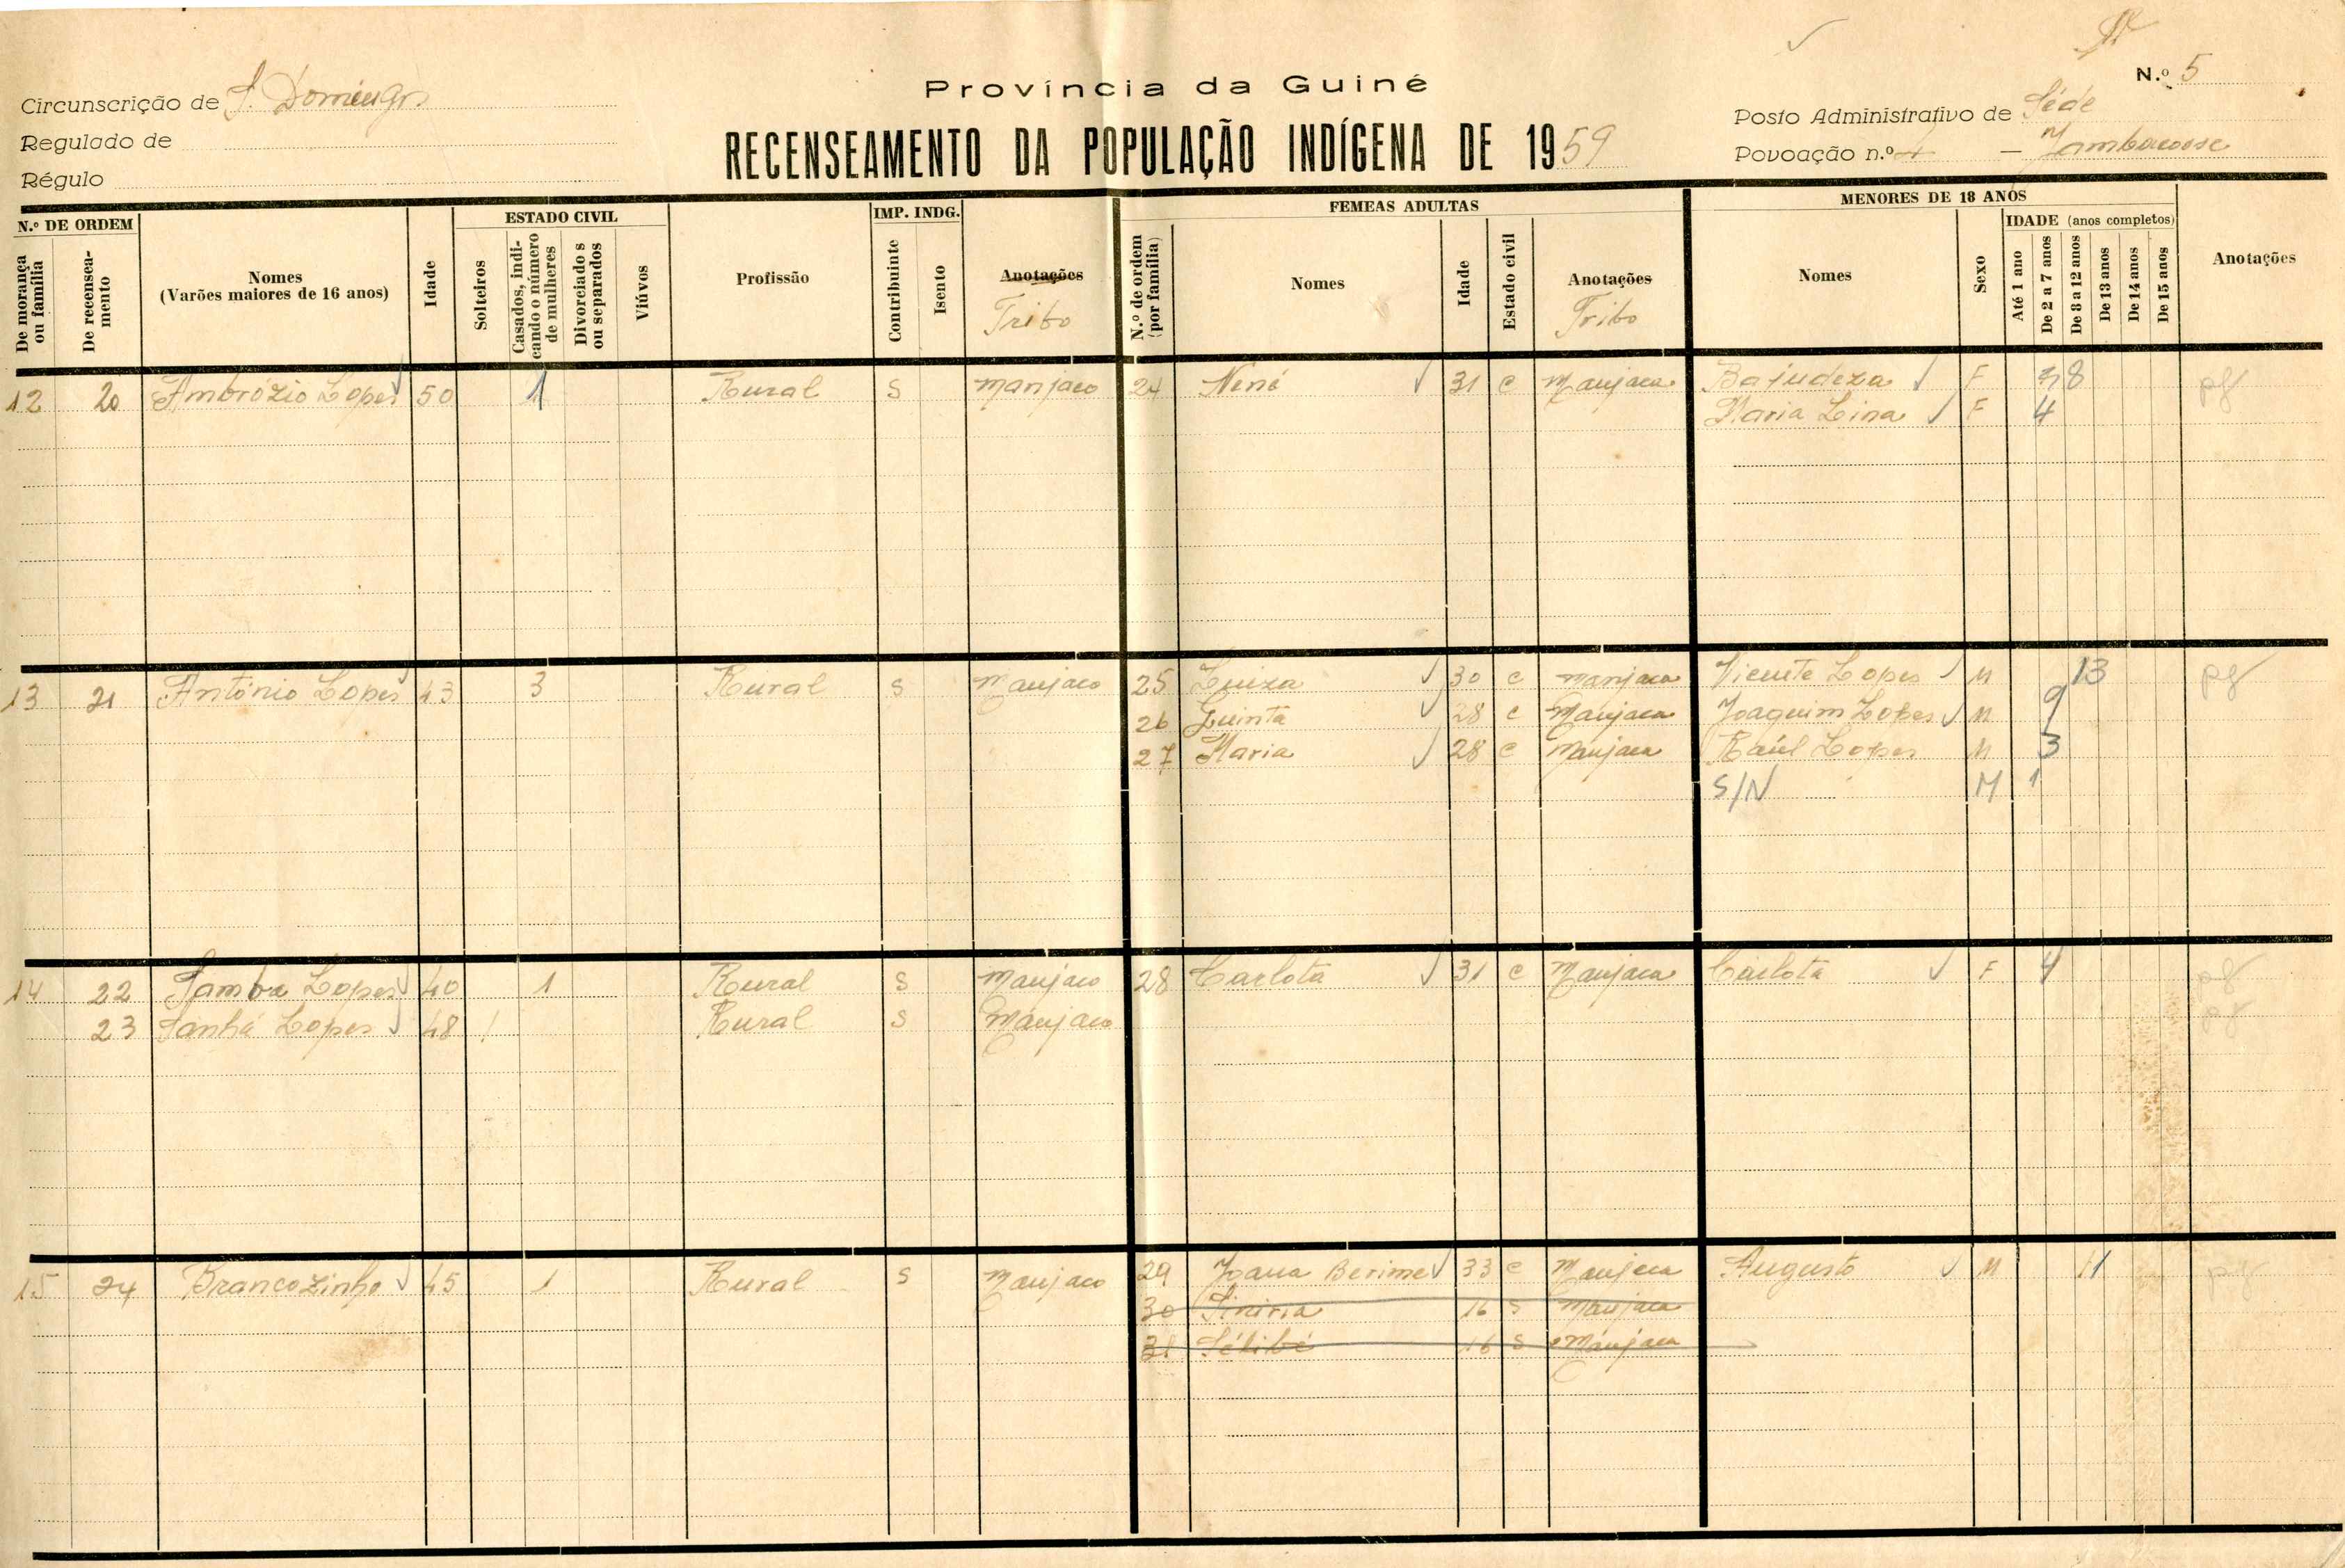 Província da Guiné
N.º 5
Circunscrição de S. Domingos
Posto Administrativo de Séde
Regulado de
RECENSEAMENTO DA POPULAÇÃO INDÍGENA DE 1959
Povoação n.º 4 –
Régulo
N.º DE ORDEM
De morança ou família
De recenseamento
Nomes
(Varões maiores de 16 anos)
Idade
ESTADO CIVIL
Solteiros
Casados, indicando o número de mulheres
Divorciados ou separados
Viúvos
Profissão
IMP. INDG.
Contribuinte
Isento
Anotações
Tribo
FEMEAS ADULTAS
N.º de ordem (por família)
Nomes
Idade
Estado civil
Anotações
Tribo
MENORES DE 18 ANOS
Nomes
Sexo
IDADE (anos completos)
Até 1 ano
De 2 a 7 anos
De 8 a 12 anos
De 13 anos
De 14 anos
De 15 anos
Anotações
12 20 Ambrózio Lopes 50 1 Rural S Manjaco 24 Nené 31 C Manjaca Bajudeza F 8 pg
Maria Lina F 4
13 21 António Lopes 43 3 Rural S Manjaco 25 Luiza 30 C Manjaca Vicente Lopes M 13 pg
26 Quinta 28 C Manjaca Joaquim Lopes M 9
27 Maria 28 C Manjaca Raúl Lopes M 3
S/N M 1
14 22 Samba Lopes 40 1 Rural S Manjaco 28 Carlota 31 C Manjaca Carlota F 4 pg
23 Sanhá Lopes 48 / Rural S Manjaco pg
15 24 Brancozinho 45 1 Rural S Manjaco 29 Joana Berime 33 C Manjaca Augusto M 11 pg
30 Siniria 16 S Manjaca
31 Sélibé 16 S Manjaca